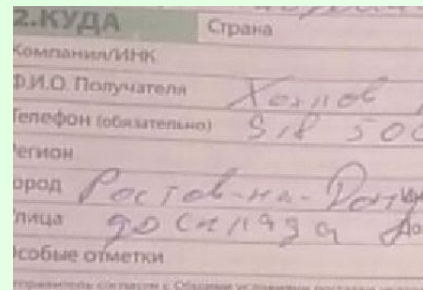 2.КУДА Страна
Компания/ИНК
Ф.И.О. Получателя
Телефон (обязательно) 918 500
Регион
ород Ростов-на-Дону
лица до склада До
Особые отметки
тправитель согласен с Общими условиями доставки